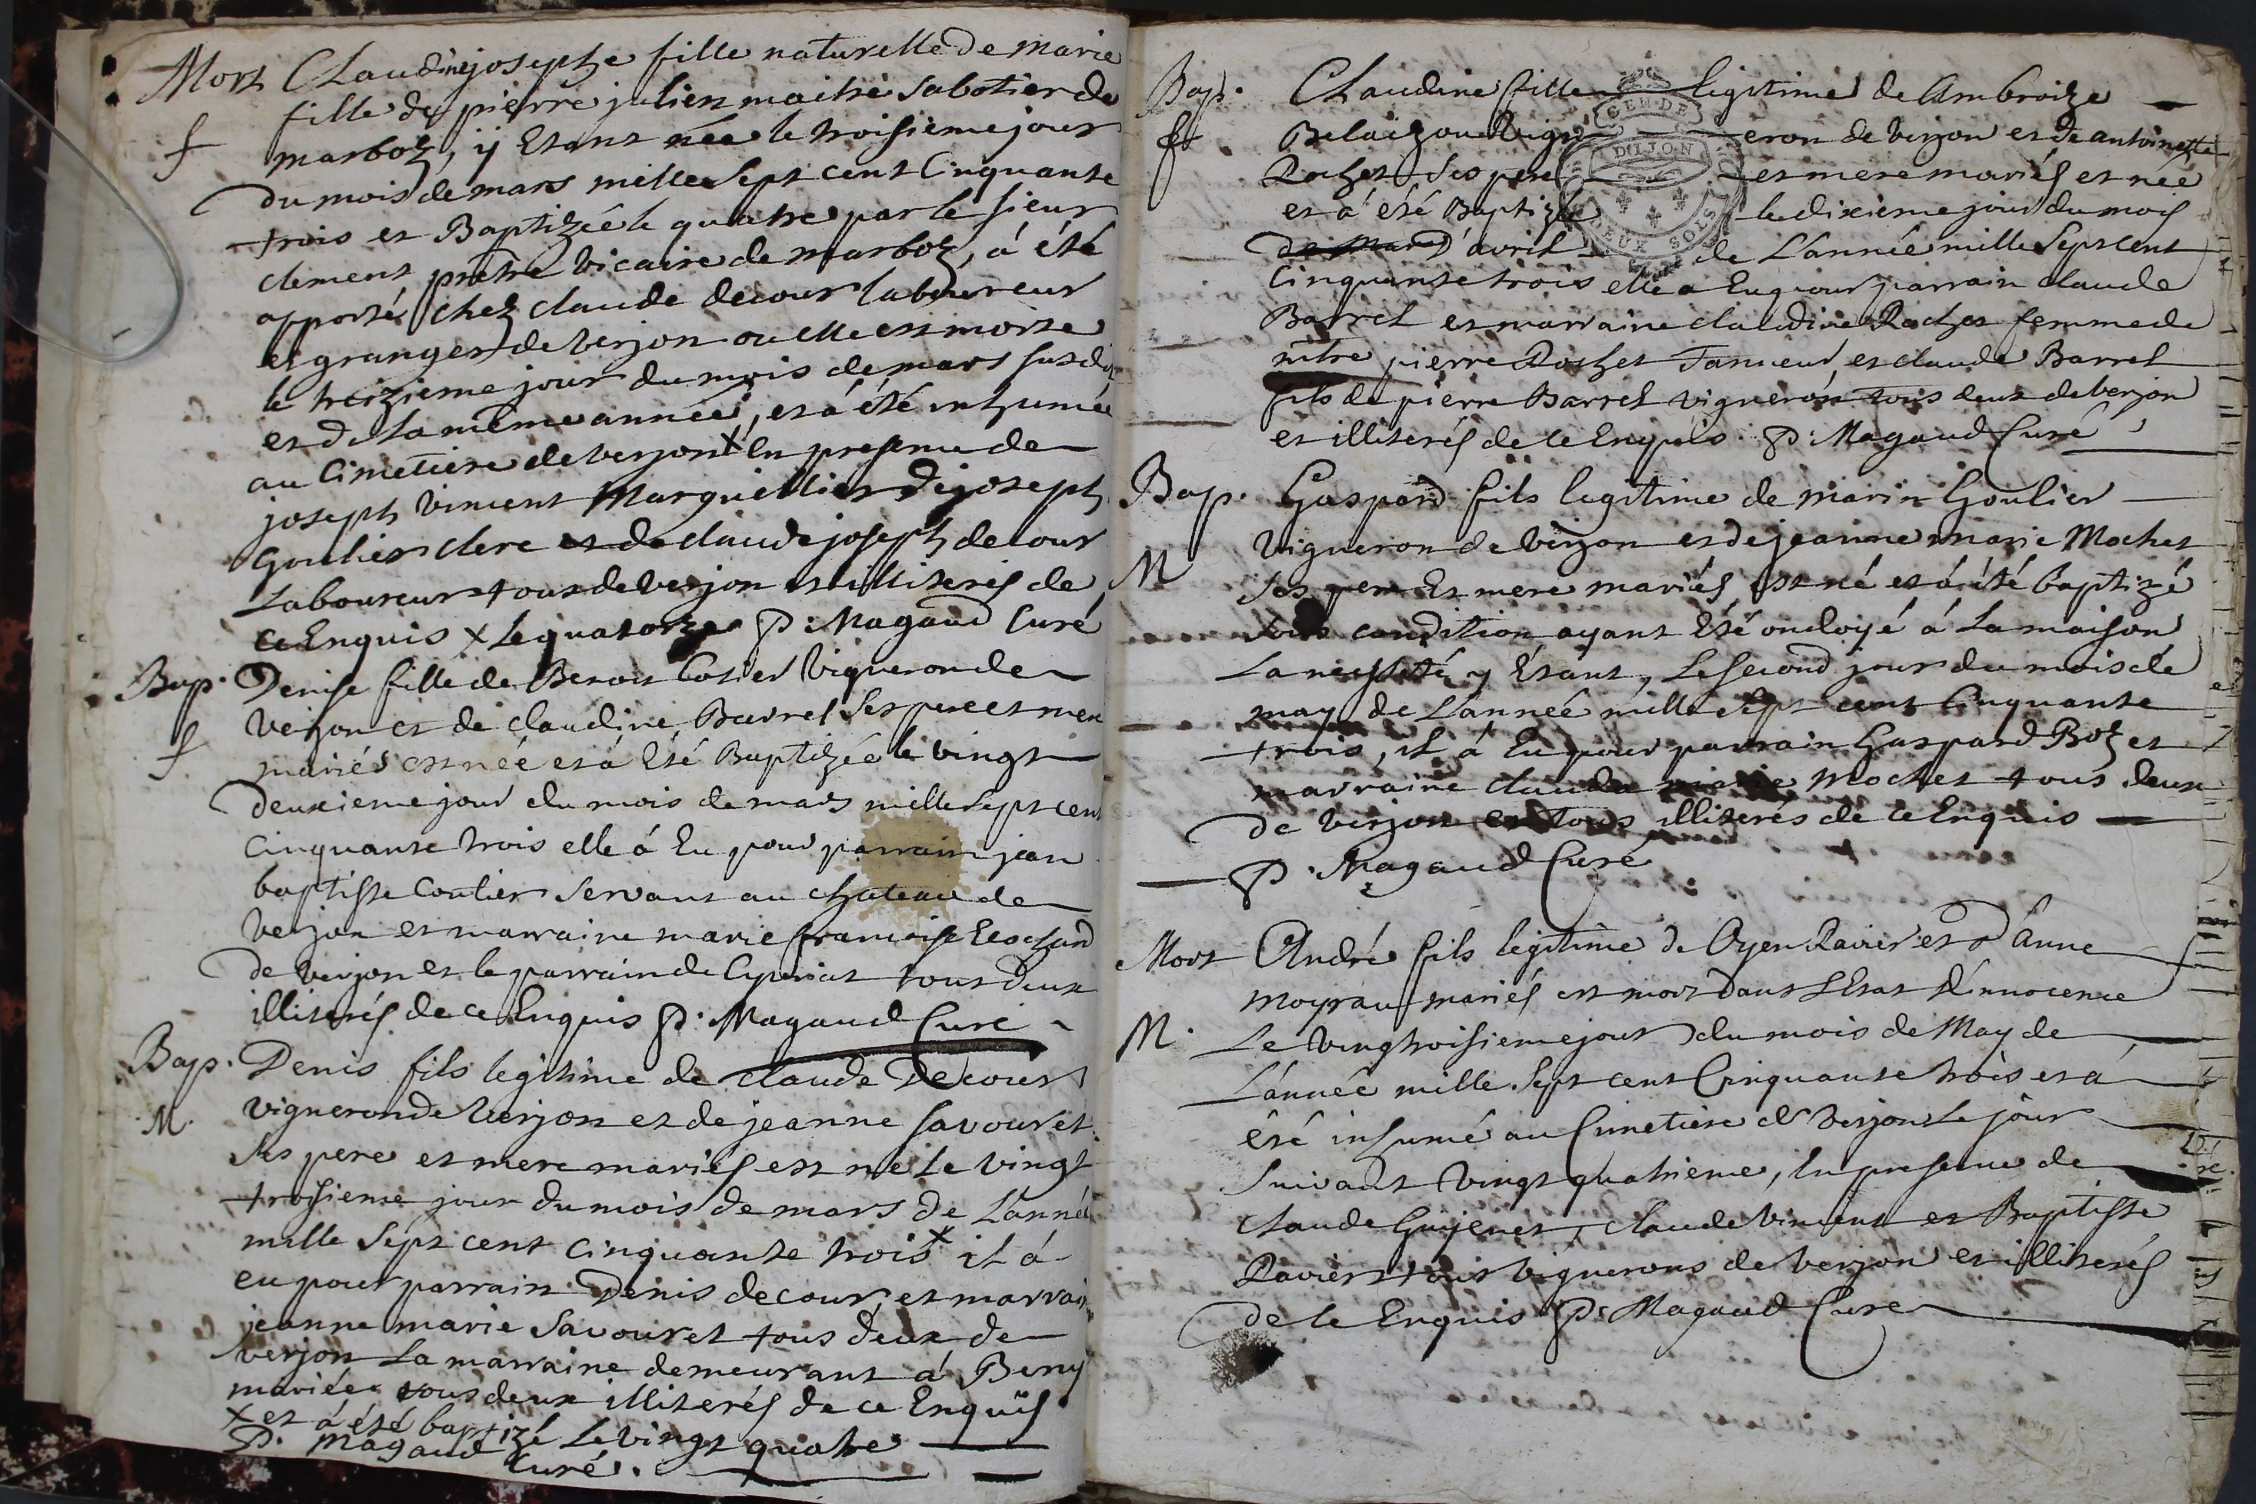 Mort Claudinejosephe fille naturelle de marie
fille de pierre julien maitre sabotier de
f marboz, ÿ Etant née le troisieme jour
du mois de mars mille sept cent Cinquante
trois et Baptizée le quatre par le sieur
clement prêtre vicaire de marboz, á été
apporté chez claude decour laboureur
et granger de verjon ou elle est morte
le treizieme jour du mois de mars susdit
et de la même année, et á été inhumée
au Cimetiere de verjon x En presence de
joseph vincent Marguillier de joseph
Goulier clerc et de claude joseph decour
Laboureur tous de verjon et illiterés de
ce Enquis x le quatorze P. Magaud Curé
Bap. Denise fille de Benoit Cotier Vigneron de
verjon et de claudine Barret ses pere et mere
f mariés est née et á Eté Baptizée le vingt
deuxieme jour du mois de mars mille sept cent
Cinquante trois elle á Eu pour parrain jean
baptiste Coulier servant au chateau de
verjon et marraine marie francoise
de verjon et le parrain de Cyperiat tous deux
illiterés de ce Enquis P. Magaud Curé
Bap. Denis fils legitime de claude Decour
M. vigneron de verjon et de jeanne savouret
ses pere et mere mariés est né le vingt
troisieme jour du mois de mars de L'année
mille sept cent cinquante trois x il á
eu pour parrain Denis decour et marraine
jeanne marie Savouret tous deux de
verjon La marraine demeurant á Beny
mariée tous deux illiterés de ce Enquis
x et á été baptizé Le vingt quatre
P. Magaud Curé.
Bap. Claudine fille legitime de Ambroize
f Belaizoud vign eron de verjon et de antoinette
Rochet ses pere et mere mariés et née
et á été Baptizée le dixieme jour du mois
de mars d'avril de L'année mille Sept cent
Cinquante trois elle a Eu pour parrain claude
Barret et marraine claudine Rochet femme de
mtre pierre Rochet Tanneur et claude Barret
fils de pierre Barret vigneron tous deux de verjon
et illiterés de ce Enquis P. Magaud Curé
GEN. DE
DIJON
DEUX SOLS
Bap. Gaspard fils legitime de marin Goulier
vigneron de verjon et de jeanne marie Mochet
M ses pere Et mere mariés, est né et á été baptizé
sous condition ayant Eté ondoyé á La maison
La necessité y Etant, Le second jour du mois de
may de L'année mille sept cent Cinquante
trois, il á Eu pour parrain Gaspard Boz et
marraine claudine marie Mochet tous deux
de verjon et tous illiterés de ce Enquis
P. Magaud Curé
Mort André fils legitime de Oyen Ravier et d'Anne
Moyraud mariés est mort dans L'Etat d'Innocence
M. Le vingtroisieme jour du mois de May de
L'année mille Sept cent Cinquante trois et á
été inhumé au Cimetiere de verjon Le jour
suivant vingt quatrieme, En presence de
claude Guyenet, claude vincent et Baptiste
Ravier tous vignerons de verjon et illiterés
de ce Enquis P. Magaud Curé